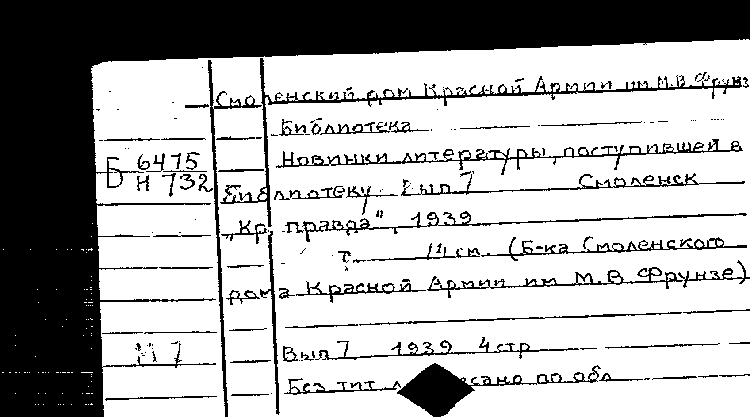 Смоленский дом Красной Армии им М.В. Фрунз
Библиотека
Б 6475
Н 732
Новинки литературы, поступившей в
библиотеку. Вып 7 Смоленск
„Кр. правда", 1939
т. см. (Б-ка Смоленского
дома Красной Армии им М.В Фрунзе)
М 7
Вып 7 1939 4 стр
Без тит по обл